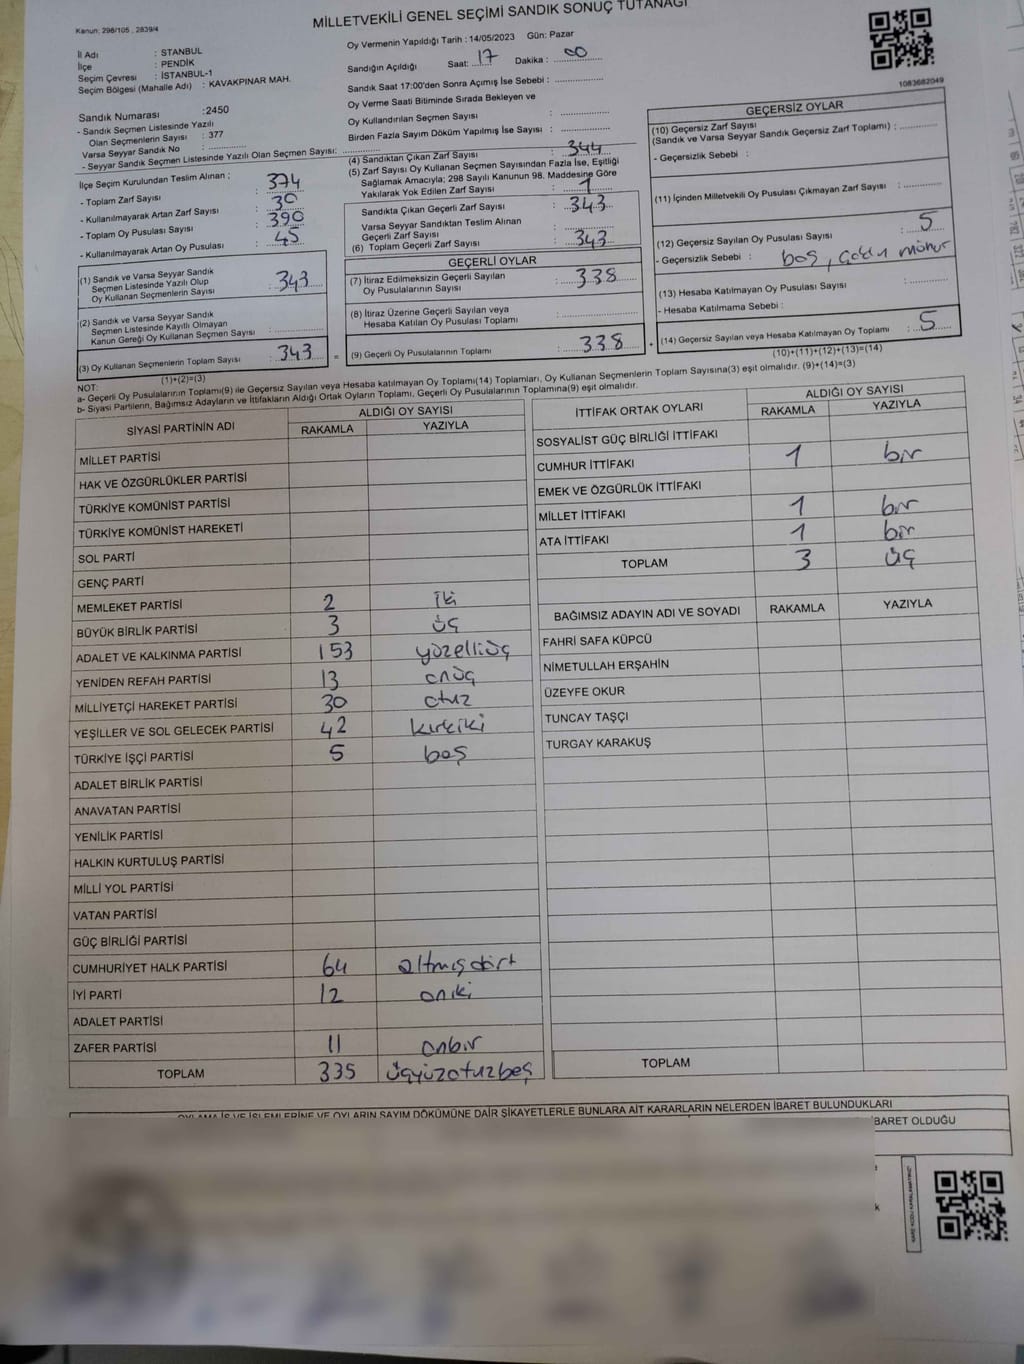 MİLLETVEKİLİ GENEL SEÇİMİ SANDIK SONUÇ TUTANAĞI
Kanun: 298/105 , 2839/4
İl Adı : STANBUL
İlçe : PENDİK
Seçim Çevresi : İSTANBUL-1
Seçim Bölgesi (Mahalle Adı) : KAVAKPINAR MAH.
Sandık Numarası :2450
- Sandık Seçmen Listesinde Yazılı
Olan Seçmenlerin Sayısı : 377
Varsa Seyyar Sandık No :
- Seyyar Sandık Seçmen Listesinde Yazılı Olan Seçmen Sayısı:
Oy Vermenin Yapıldığı Tarih : 14/05/2023 Gün: Pazar
Sandığın Açıldığı Saat: 17 Dakika : 00
Sandık Saat 17:00'den Sonra Açımış İse Sebebi :
Oy Verme Saati Bitiminde Sırada Bekleyen ve
Oy Kullandırılan Seçmen Sayısı :
Birden Fazla Sayım Döküm Yapılmış İse Sayısı :
1083682049
İlçe Seçim Kurulundan Teslim Alınan ;
- Toplam Zarf Sayısı : 374
- Kullanılmayarak Artan Zarf Sayısı : 30
- Toplam Oy Pusulası Sayısı : 390
- Kullanılmayarak Artan Oy Pusulası : 45
(1) Sandık ve Varsa Seyyar Sandık
Seçmen Listesinde Yazılı Olup
Oy Kullanan Seçmenlerin Sayısı : 343
(2) Sandık ve Varsa Seyyar Sandık
Seçmen Listesinde Kayıtlı Olmayan
Kanun Gereği Oy Kullanan Seçmen Sayısı :
(3) Oy Kullanan Seçmenlerin Toplam Sayısı : 343 =
(1)+(2)=(3)
(4) Sandıktan Çıkan Zarf Sayısı : 344
(5) Zarf Sayısı Oy Kullanan Seçmen Sayısından Fazla İse, Eşitliği
Sağlamak Amacıyla; 298 Sayılı Kanunun 98. Maddesine Göre
Yakılarak Yok Edilen Zarf Sayısı : 1
Sandıkta Çıkan Geçerli Zarf Sayısı : 343
Varsa Seyyar Sandıktan Teslim Alınan
Geçerli Zarf Sayısı :
(6) Toplam Geçerli Zarf Sayısı : 343
GEÇERLİ OYLAR
(7) İtiraz Edilmeksizin Geçerli Sayılan
Oy Pusulalarının Sayısı : 338
(8) İtiraz Üzerine Geçerli Sayılan veya
Hesaba Katılan Oy Pusulası Toplamı :
(9) Geçerli Oy Pusulalarının Toplamı : 338 +
GEÇERSİZ OYLAR
(10) Geçersiz Zarf Sayısı
(Sandık ve Varsa Seyyar Sandık Geçersiz Zarf Toplamı) :
- Geçersizlik Sebebi :
(11) İçinden Milletvekili Oy Pusulası Çıkmayan Zarf Sayısı :
(12) Geçersiz Sayılan Oy Pusulası Sayısı : 5
- Geçersizlik Sebebi : boş, mühür
(13) Hesaba Katılmayan Oy Pusulası Sayısı :
- Hesaba Katılmama Sebebi :
(14) Geçersiz Sayılan veya Hesaba Katılmayan Oy Toplamı : 5
(10)+(11)+(12)+(13)=(14)
NOT:
a- Geçerli Oy Pusulalarının Toplamı(9) ile Geçersiz Sayılan veya Hesaba katılmayan Oy Toplamı(14) Toplamları, Oy Kullanan Seçmenlerin Toplam Sayısına(3) eşit olmalıdır. (9)+(14)=(3)
b- Siyasi Partilerin, Bağımsız Adayların ve İttifakların Aldığı Ortak Oyların Toplamı, Geçerli Oy Pusulalarının Toplamına(9) eşit olmalıdır.
SİYASİ PARTİNİN ADI ALDIĞI OY SAYISI
RAKAMLA YAZIYLA
MİLLET PARTİSİ
HAK VE ÖZGÜRLÜKLER PARTİSİ
TÜRKİYE KOMÜNİST PARTİSİ
TÜRKİYE KOMÜNİST HAREKETİ
SOL PARTİ
GENÇ PARTİ
MEMLEKET PARTİSİ 2 iki
BÜYÜK BİRLİK PARTİSİ 3 üç
ADALET VE KALKINMA PARTİSİ 153 yüzelliüç
YENİDEN REFAH PARTİSİ 13 onüç
MİLLİYETÇİ HAREKET PARTİSİ 30 otuz
YEŞİLLER VE SOL GELECEK PARTİSİ 42 kırkiki
TÜRKİYE İŞÇİ PARTİSİ 5 beş
ADALET BİRLİK PARTİSİ
ANAVATAN PARTİSİ
YENİLİK PARTİSİ
HALKIN KURTULUŞ PARTİSİ
MİLLİ YOL PARTİSİ
VATAN PARTİSİ
GÜÇ BİRLİĞİ PARTİSİ
CUMHURİYET HALK PARTİSİ 64 altmışdört
İYİ PARTİ 12 oniki
ADALET PARTİSİ
ZAFER PARTİSİ 11 onbir
TOPLAM 335 üçyüzotuzbeş
İTTİFAK ORTAK OYLARI ALDIĞI OY SAYISI
RAKAMLA YAZIYLA
SOSYALİST GÜÇ BİRLİĞİ İTTİFAKI
CUMHUR İTTİFAKI 1 bir
EMEK VE ÖZGÜRLÜK İTTİFAKI
MİLLET İTTİFAKI 1 bir
ATA İTTİFAKI 1 bir
TOPLAM 3 üç
BAĞIMSIZ ADAYIN ADI VE SOYADI RAKAMLA YAZIYLA
FAHRİ SAFA KÜPCÜ
NİMETULLAH ERŞAHİN
ÜZEYFE OKUR
TUNCAY TAŞÇI
TURGAY KARAKUŞ
TOPLAM
OYLAMA İŞ VE İŞLEMLERİNE VE OYLARIN SAYIM DÖKÜMÜNE DAİR ŞİKAYETLERLE BUNLARA AİT KARARLARIN NELERDEN İBARET BULUNDUKLARI
İBARET OLDUĞU